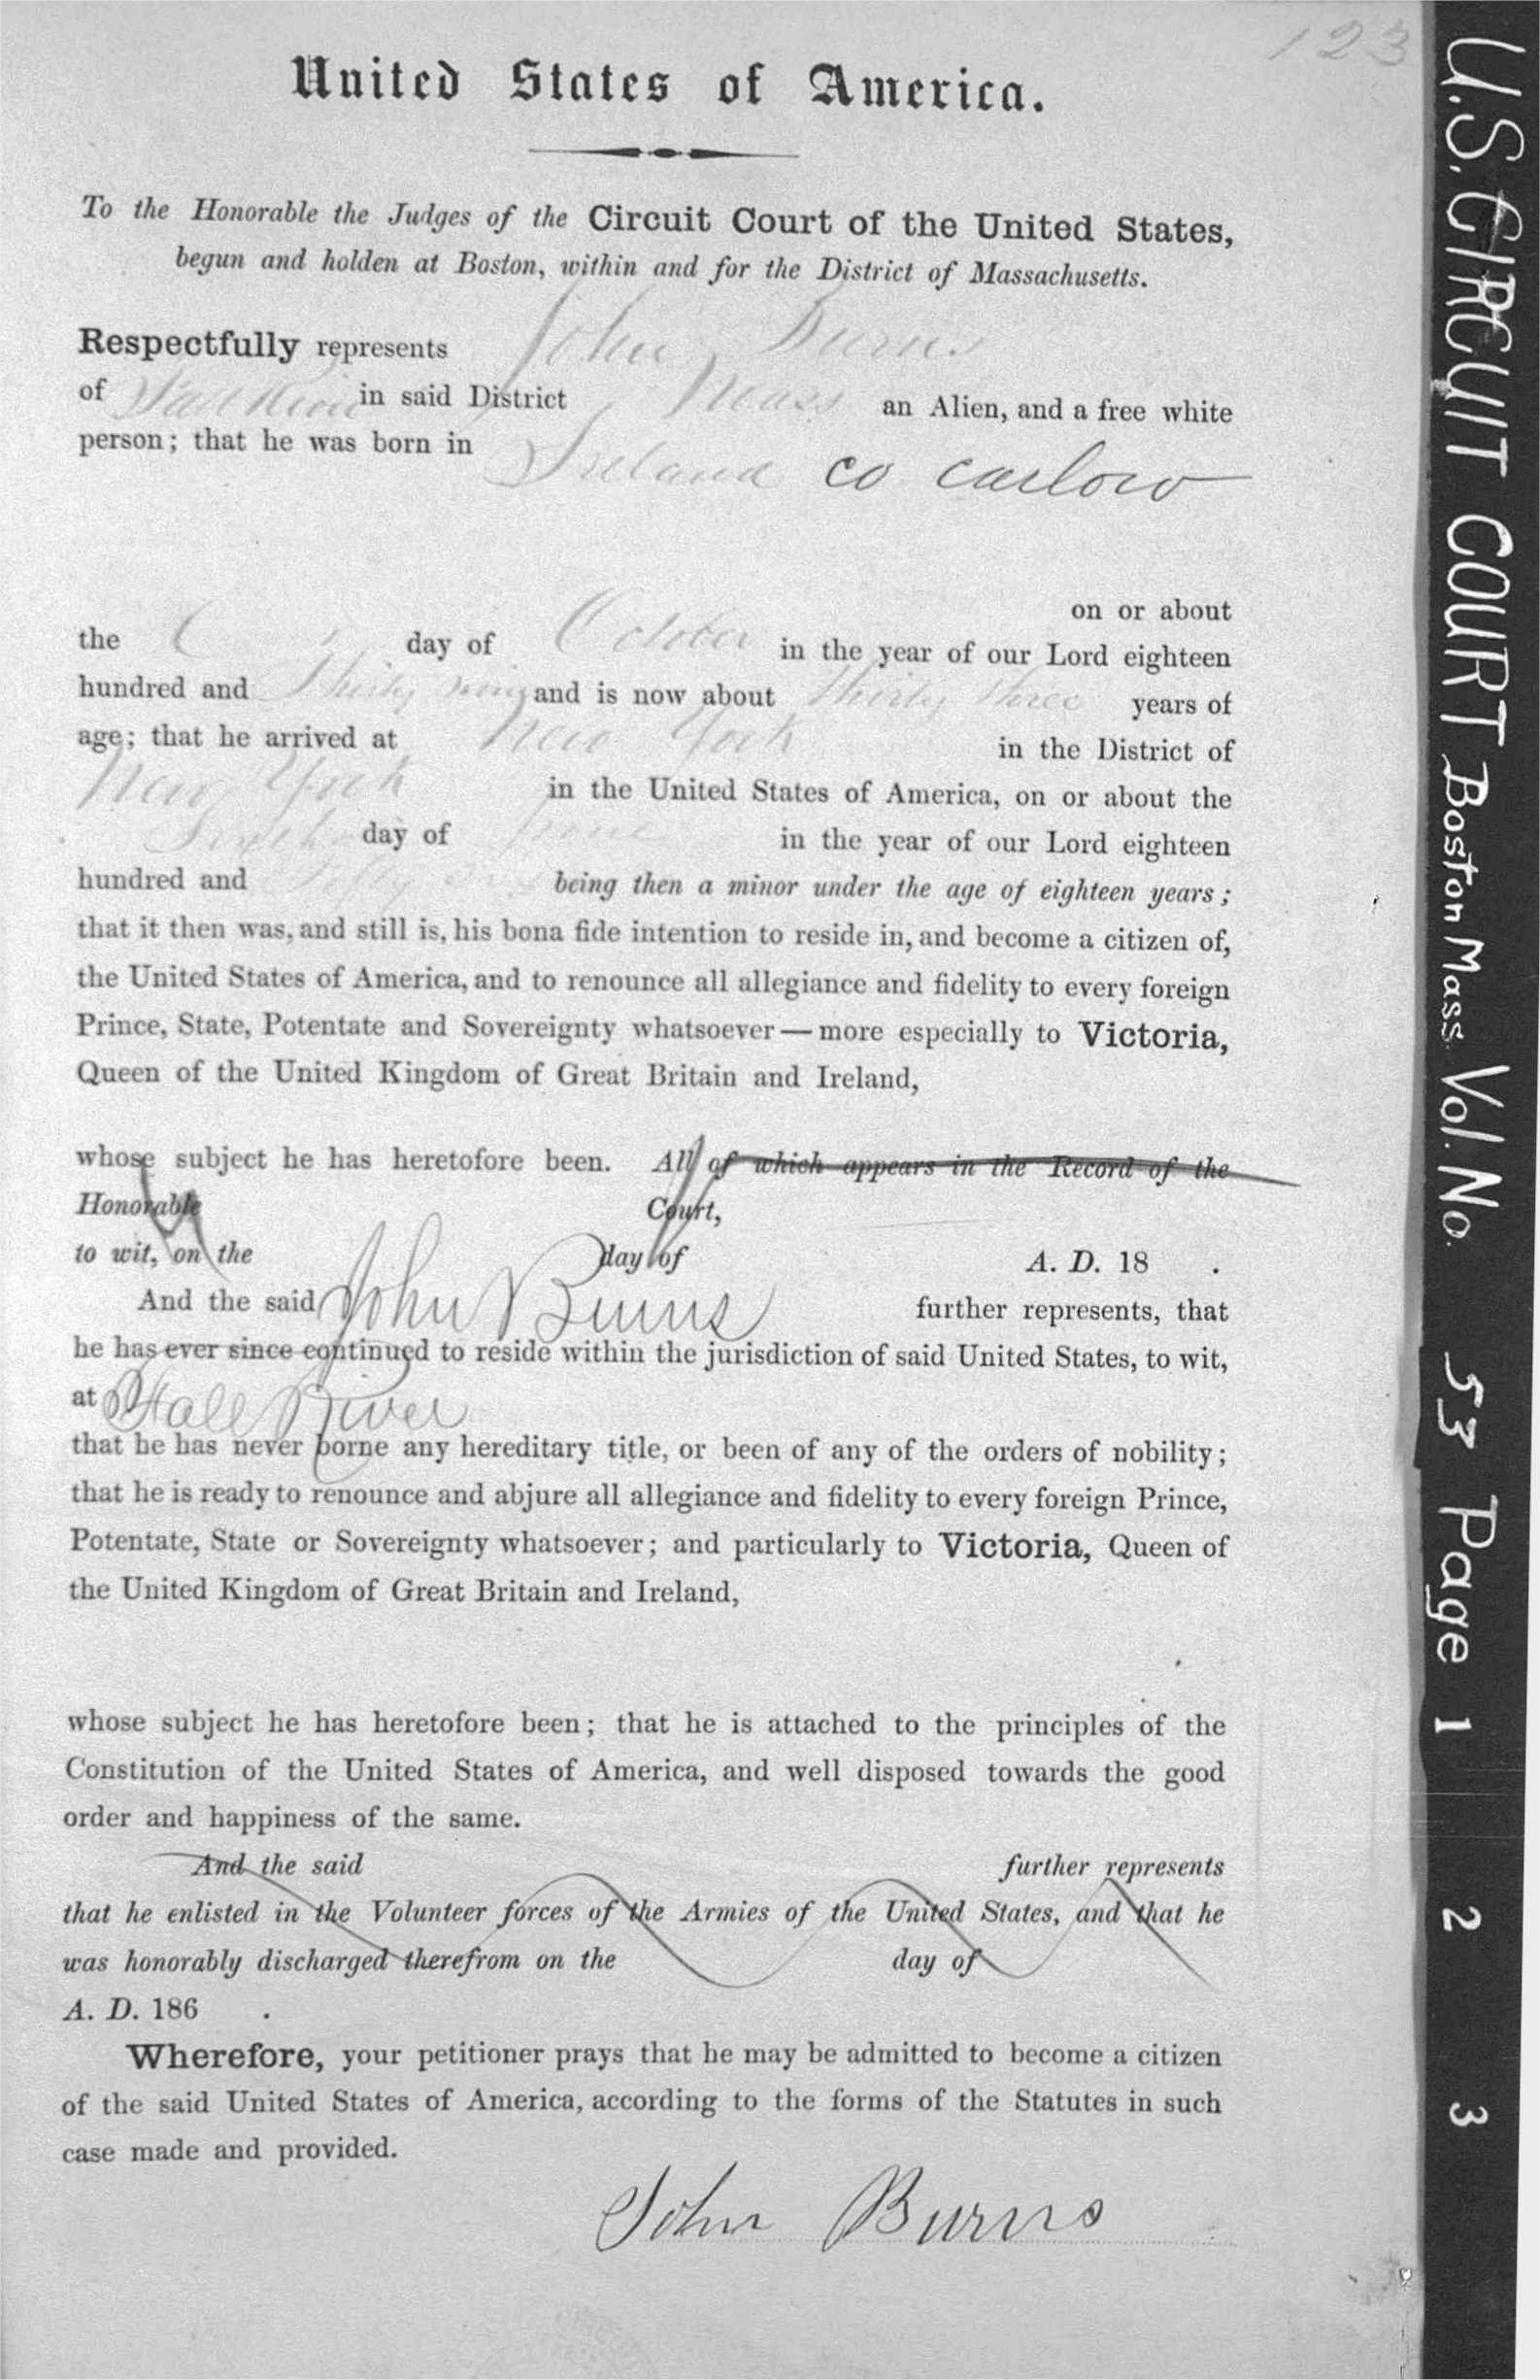 123
United States of America.
To the Honorable the Judges of the Circuit Court of the United States,
begun and holden at Boston, within and for the District of Massachusetts.
Respectfully represents John Burns
of Fall River in said District Mass an Alien, and a free white
person; that he was born in Ireland co carlow
on or about
the day of October in the year of our Lord eighteen
hundred and Thirty nine and is now about Thirty three years of
age; that he arrived at New York in the District of
New York in the United States of America, on or about the
day of June in the year of our Lord eighteen
hundred and Fifty being then a minor under the age of eighteen years;
that it then was, and still is, his bona fide intention to reside in, and become a citizen of,
the United States of America, and to renounce all allegiance and fidelity to every foreign
Prince, State, Potentate and Sovereignty whatsoever—more especially to Victoria,
Queen of the United Kingdom of Great Britain and Ireland,
whose subject he has heretofore been. All of which appears in the Record of the
Honorable Court,
to wit, on the day of A. D. 18 .
And the said John Burns further represents, that
he has ever since continued to reside within the jurisdiction of said United States, to wit,
at Fall River
that he has never borne any hereditary title, or been of any of the orders of nobility;
that he is ready to renounce and abjure all allegiance and fidelity to every foreign Prince,
Potentate, State or Sovereignty whatsoever; and particularly to Victoria, Queen of
the United Kingdom of Great Britain and Ireland,
whose subject he has heretofore been; that he is attached to the principles of the
Constitution of the United States of America, and well disposed towards the good
order and happiness of the same.
And the said further represents
that he enlisted in the Volunteer forces of the Armies of the United States, and that he
was honorably discharged therefrom on the day of
A. D. 186 .
Wherefore, your petitioner prays that he may be admitted to become a citizen
of the said United States of America, according to the forms of the Statutes in such
case made and provided.
John Burns
U.S. CIRCUIT COURT Boston Mass. Vol. No. 53 Page 1 2 3